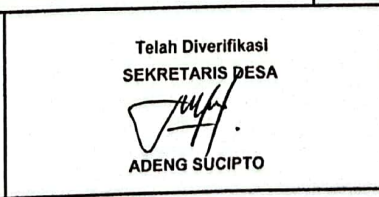 Telah Diverifikasi
SEKRETARIS DESA
ADENG SUCIPTO